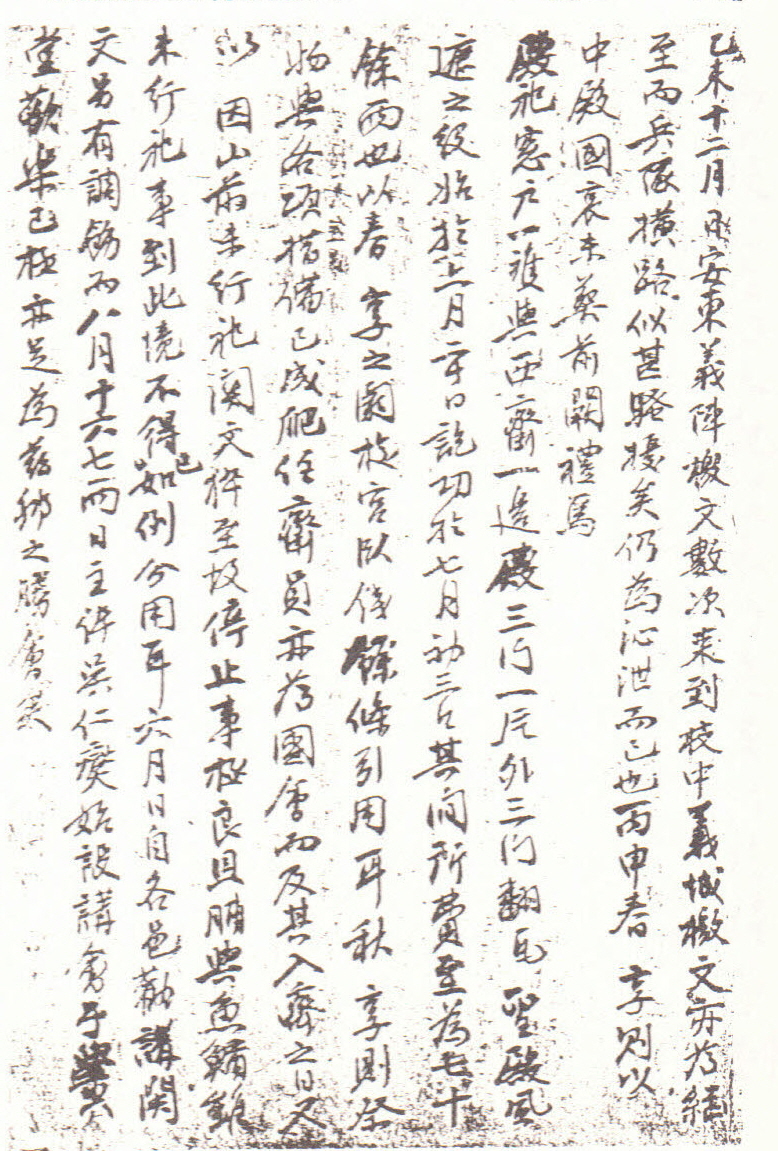 乙未十二月日安東義陣檄文數次来到校中義城檄文亦為繼
至而兵隊橫路似甚騷擾矣仍為沁泄而已也丙申春 享則以
中殿國哀未葬前闕禮焉
殿祀窓戶一雙與西齋一邊殿三门一尺外三门翻瓦 聖殿風
遮之役始於五月二十日訖功於七月初三日其间所費至為七十
餘両也以春 享之關於官以錢餘條引用耳秋 享則祭
物與各項措備已成肥任齋員亦為國會而及其入齋之日又
以 因山前未行祀関文猝至故停止事極良且脯與魚鱐雖
未行祀事到此境不得已如例分用耳六月日自各邑勸講関
文另有調飭而八月十六七両日主倅吳仁燮始設講會于學
堂歡樂已極亦足為玆鄉之勝會矣